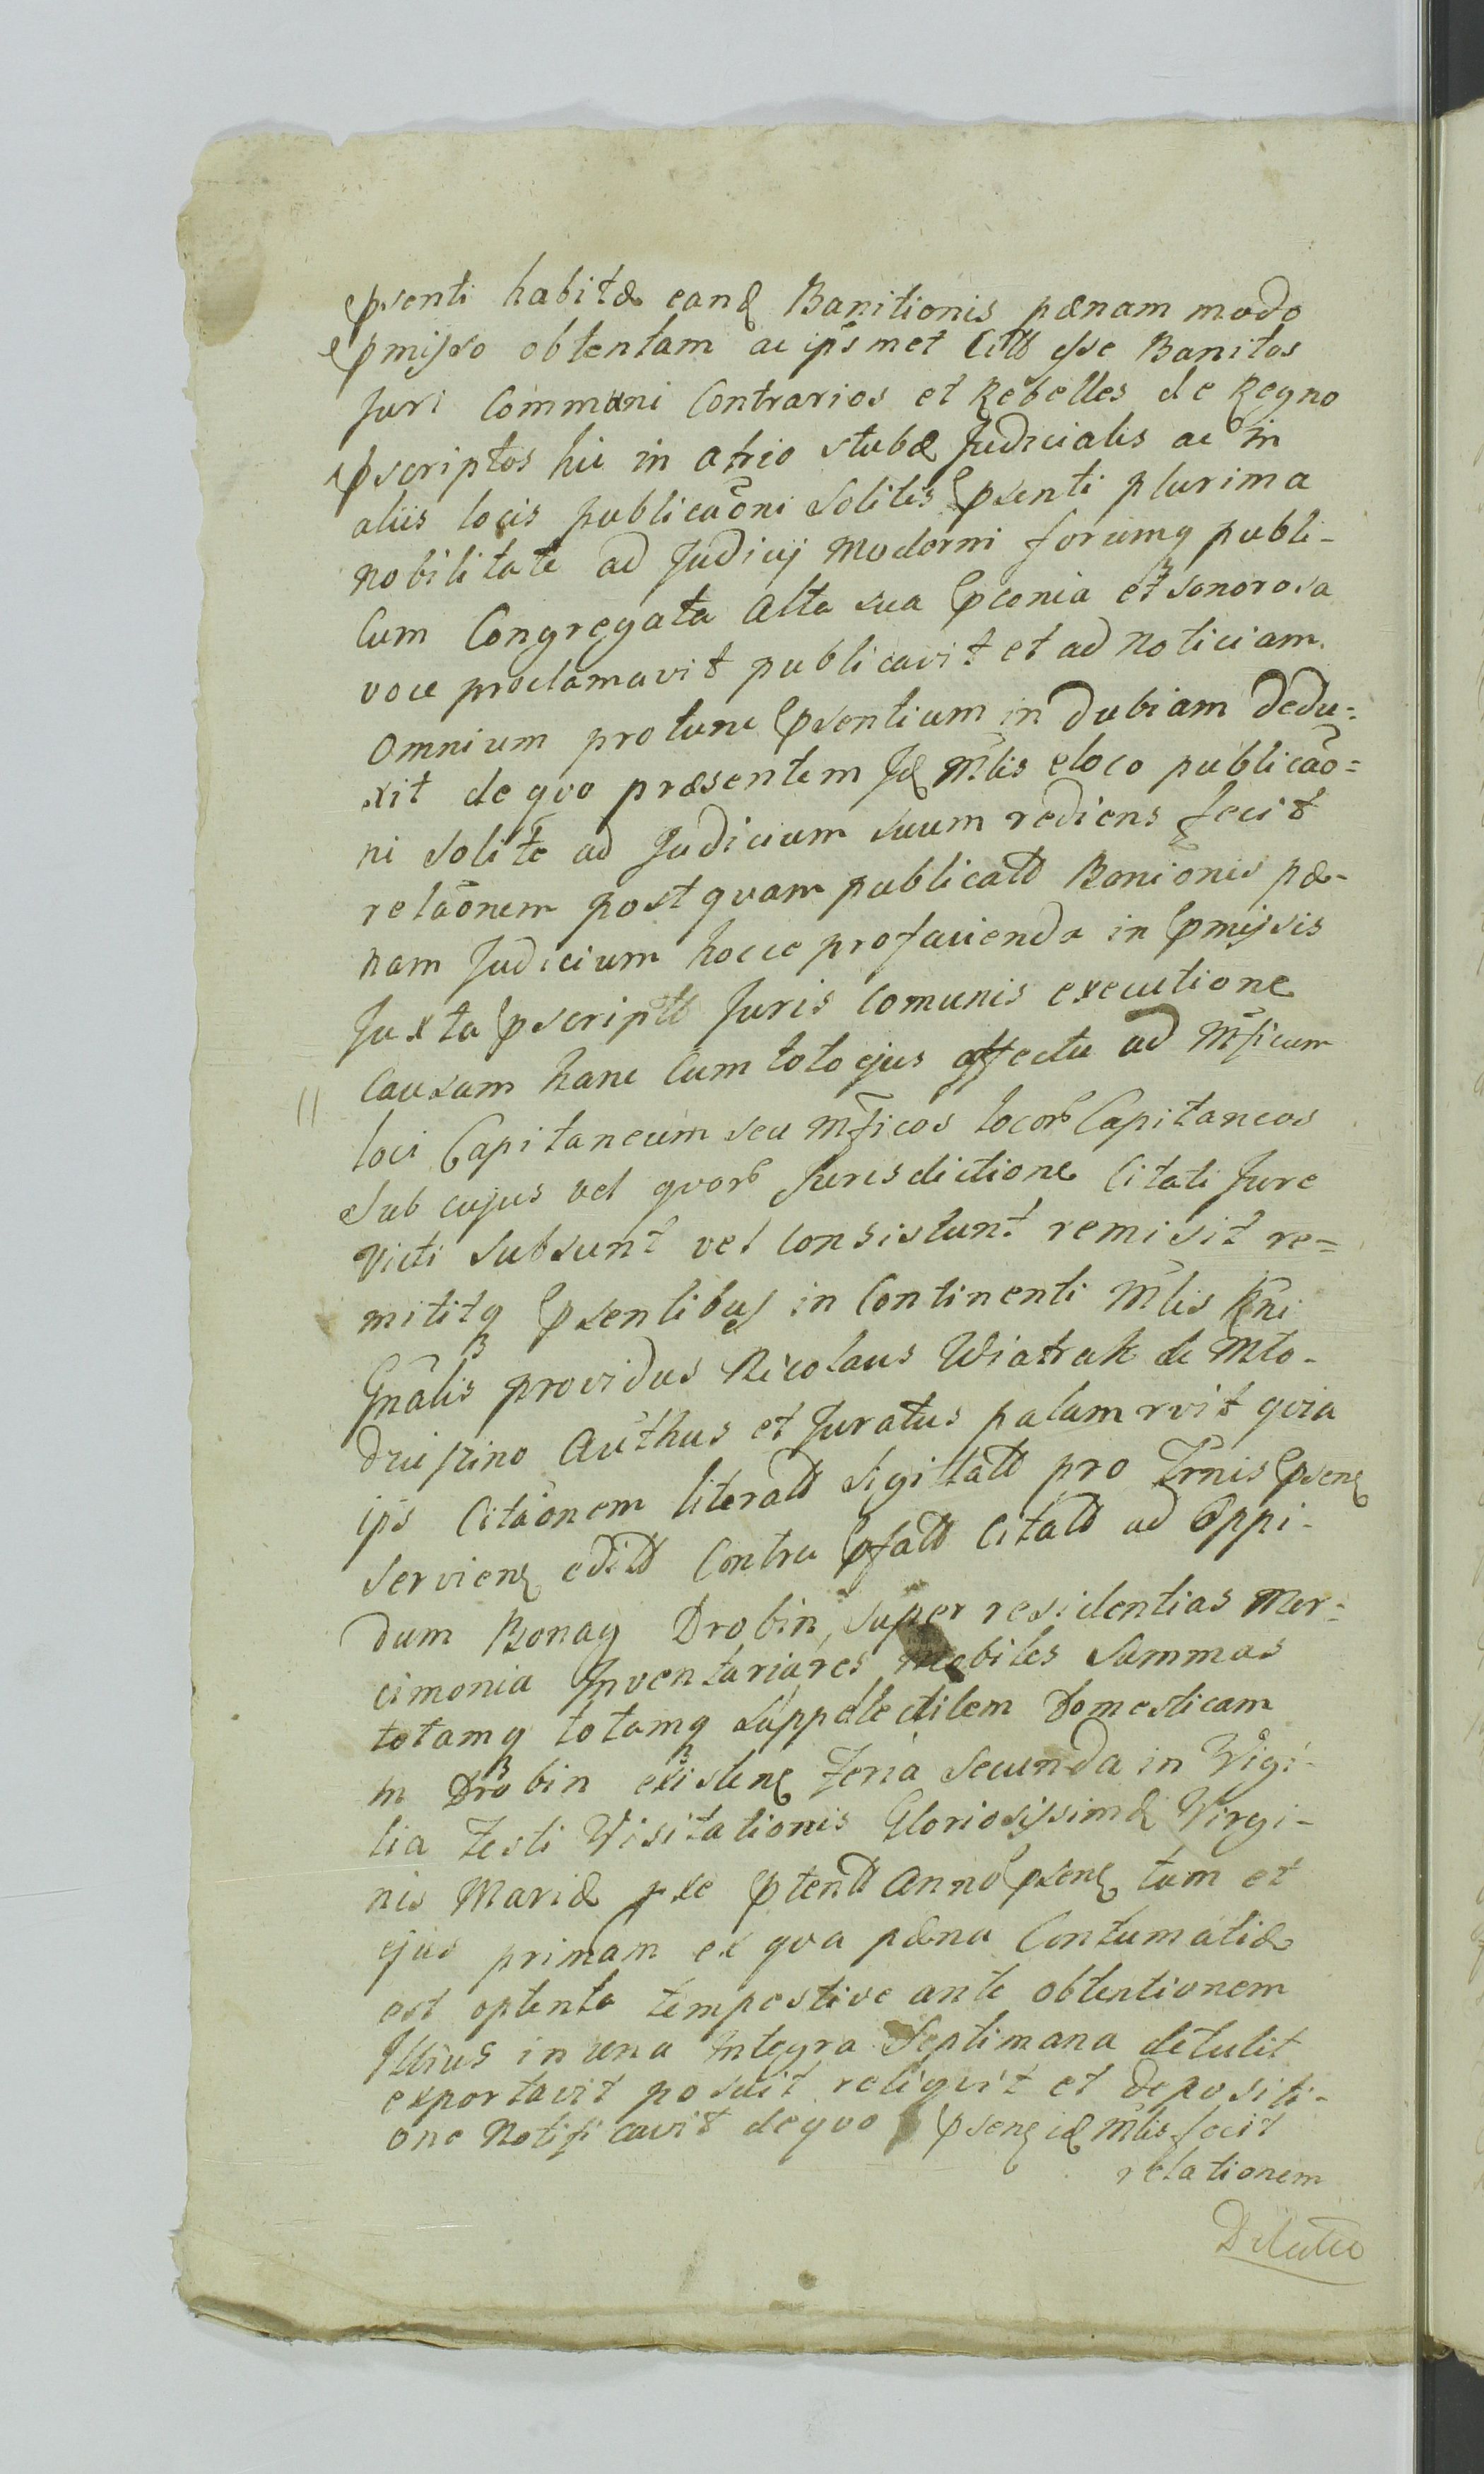 psenti habitæ eandę Banitionis pænam modo
pmisso obtentam ac ips met Citt esse Banitos
Juri Communi Contrarios et Rebelles de Regno
pscriptos hic in atrio stubæ Judicialis ac in
aliis locis publicaōni solitis psenti plurima
nobilitate ad Judicij moderni forumq publi-
Cum Congregata Alta sua pconia et sonorosa
voce proclamavit publicavit et ad noticiam
omnium protunc psentium in dubiam dedu-
xit de qvo præsentem Id M̄lis e loco publicāo=
ni solite ad Judicium suum rediens fecit
relāonem post qvam publicatt Banionis pæ-
nam Judicium hocce pro facienda in pmissis
Juxta pscriptt Juris Comunis executione
Causam hanc Cum toto ejus effectu ad Mficum
loci Capitaneum seu Mficos locor Capitaneos
Sub cujus vel qvor Jurisdictione Citati Jure
Victi subsunt vel consistunt remisit re=
mititq psentibus in Continenti M̄lis Rni
Gnālis providus Nicolaus Wiatrak de Mło-
dzi ino Authus et Juratus palam rvit qvia
ips Citāonem literatt Sigillatt pro Trnis psenę
servienę editt Contra pfatt Citatt ad Oppi-
dum Bonaq Drobin, super residentias Mer-
cimonia Inventaria res mobiles Summas
totamq totamq Suppellectilem Domesticam
in Drobin existenę Feria Secunda in Vigi-
lia Festi Visitationis Gloriosissimæ Virgi-
nis Mariæ pxe ptentt Anno psenę tum et
ejus primam ex qva pæna Contumatiæ
est optenta tempestive ante obtentionem
Illius in una Integra Septimana detulit
exportavit posuit reliqvit et depositi-
one Notificavit de qvo psenę idę M̄lis fecit
relationem
Dilatio